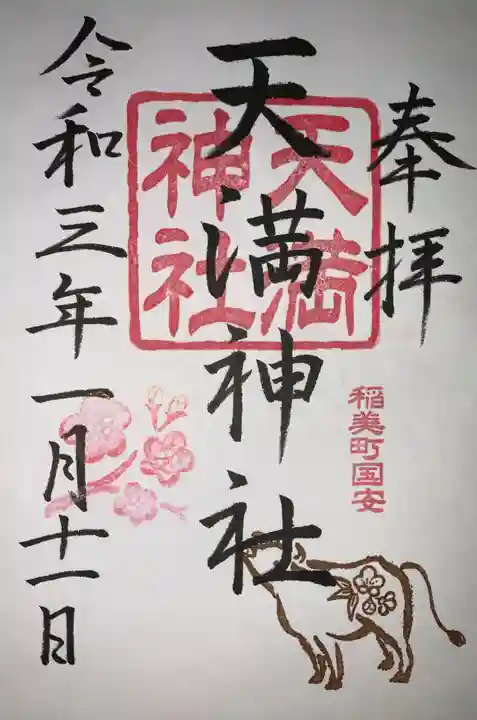 奉拝
稲美町国安
天満神社
天満神社
令和三年一月十一日